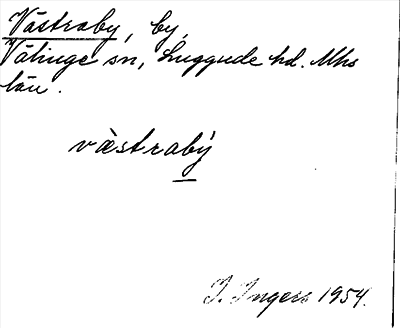 Västraby, by,
Välinge sn, Luggude hd. Mhs
län.
västraby̓
I. Ingers 1954.